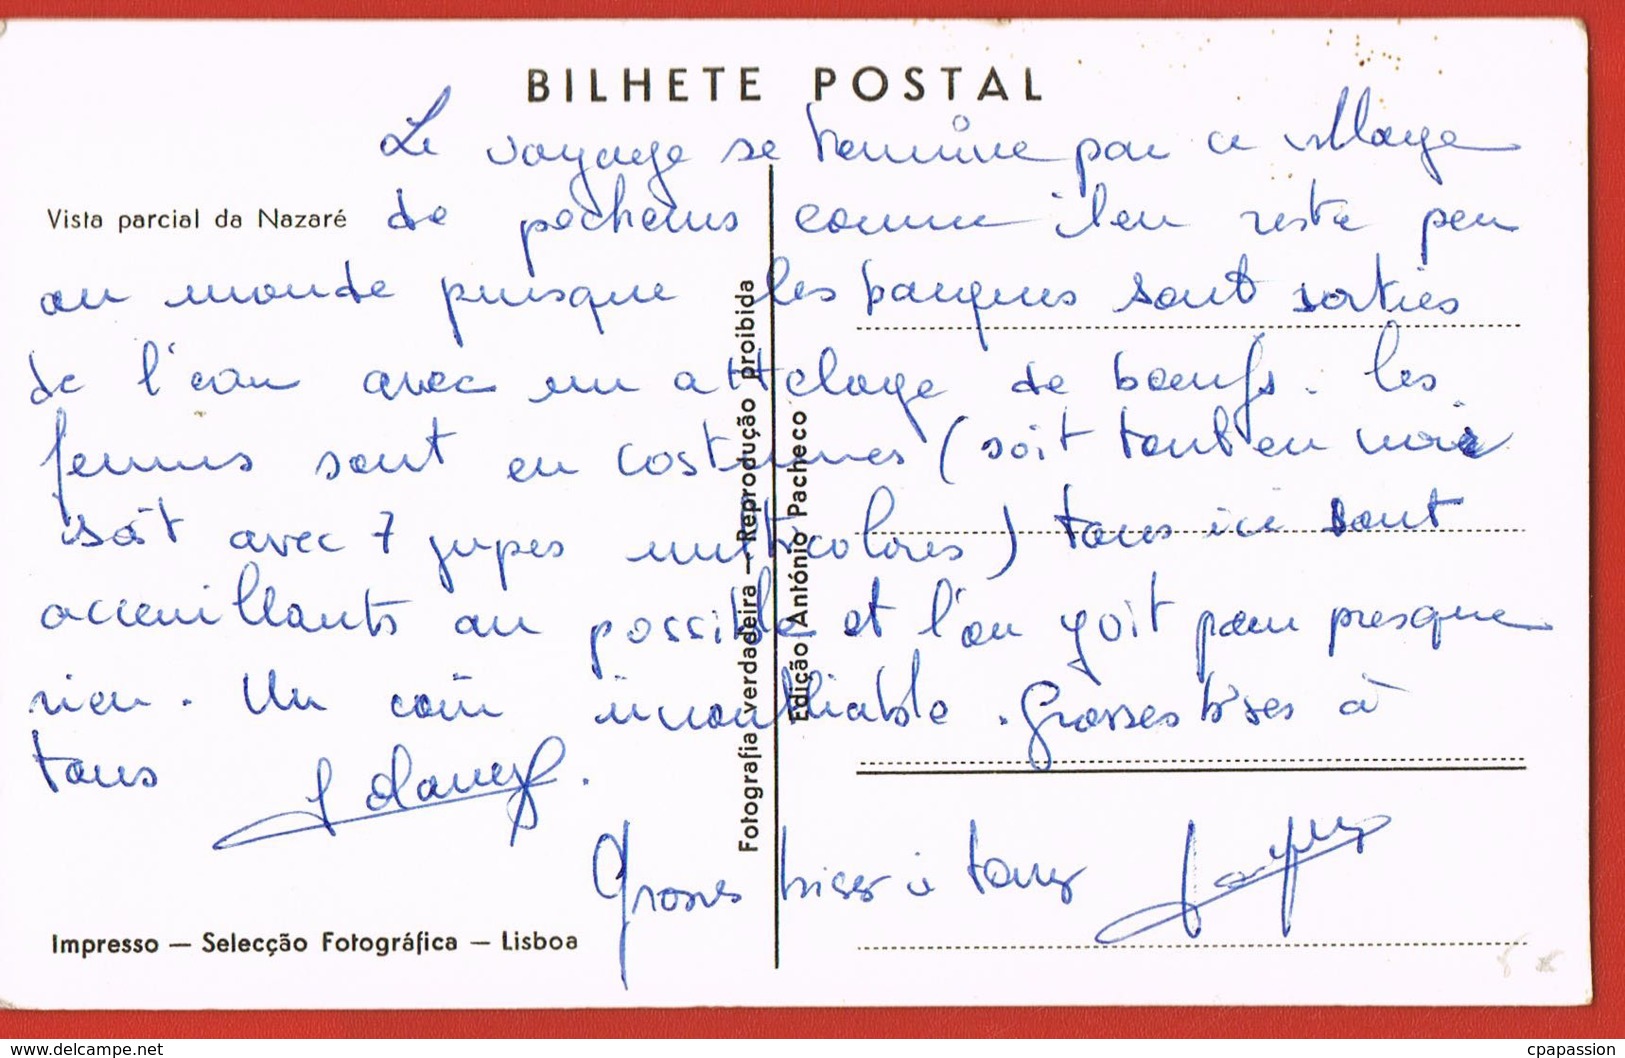 BILHETE POSTAL
Le voyage se termine par ce village
Vista parcial da Nazaré
de pecheurs comme il en reste peu
au monde puisque les barques sont sorties
de l'eau avec un attelage de boeufs. les
femmes sont en costumes (soit tout en noir
soit avec 7 jupes multicolores) tous ici sont
accueillants au possible et l'on voit pour presque
rien. Un coin inoubliable. Grosses bises à
tous
Grosses bises à tous Jacques
Fotografia verdadeira — Reprodução proibida
Edição António Pacheco
Impresso — Selecção Fotográfica — Lisboa
www.delcampe.net
cpapassion